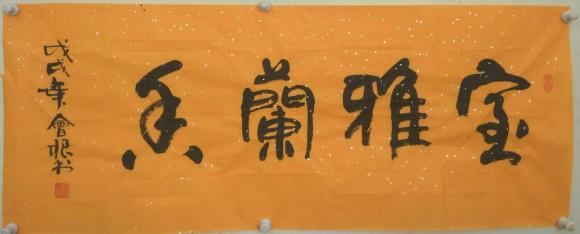 宝雅蘭香
戊戌年會根书